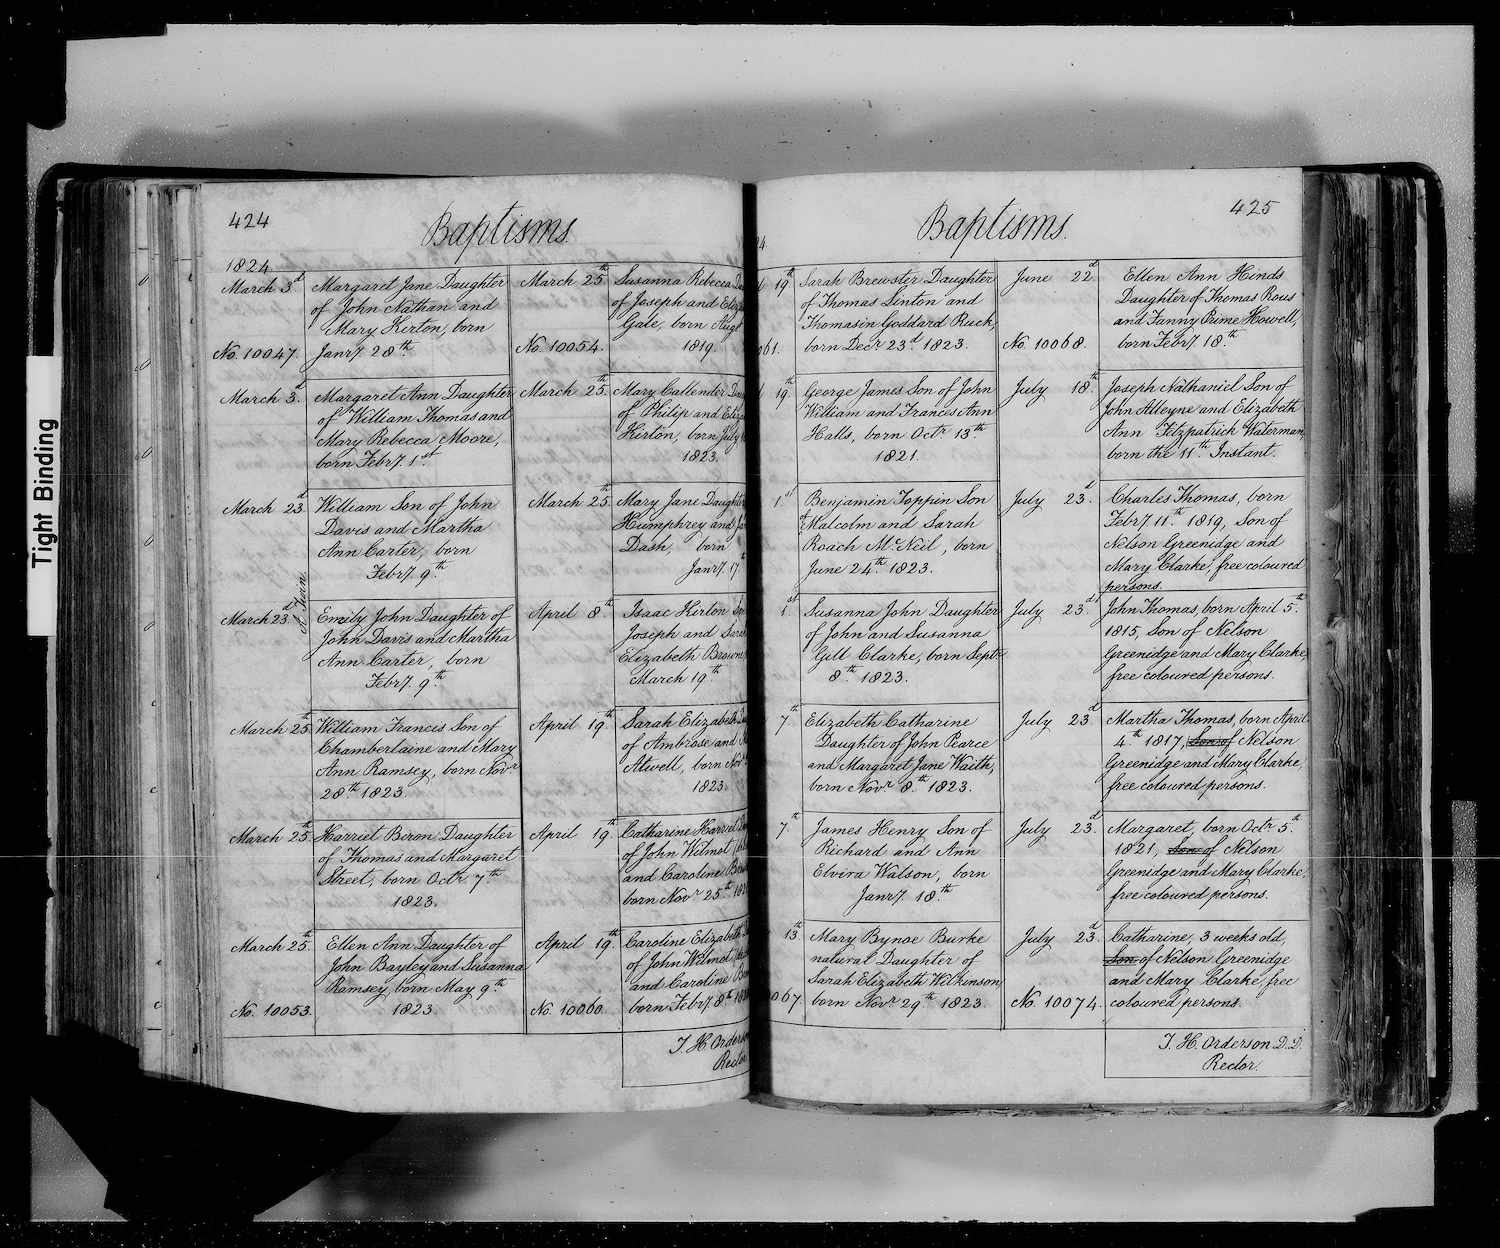 Tight Binding
424
Baptisms
1824
March 3d
Margaret Jane Daughter
of John Nathan and
Mary Kirton, born
No. 10047.
Janry 28th
March 3d.
Margaret Ann Daughter
of William Thomas and
Mary Rebecca Moore,
born Febry. 1st
March 23d
William Son of John
Davis and Martha
Ann Carter, born
Febry 9th
A Twin.
March 23d
Emily John Daughter of
John Davis and Martha
Ann Carter, born
Febry. 9th
March 25th
William Francis Son of
Chamberlaine and Mary
Ann Ramsey, born Novr
28th 1823.
March 25th
Harriet Biron Daughter
of Thomas and Margaret
Street, born Octr 7th
1823.
March 25th
Ellen Ann Daughter of
John Bayley and Susanna
Ramsey, born May 9th
No. 10053.
1823
March 25th
Susanna Rebecca
of Joseph and
Gale, born
No. 10054.
1819.
March 25th
Mary Callender
of Philip and
Kirton, born July
1823.
March 25th
Mary Jane Daughter
Humphrey and
Dash, born
Janry. 17th
April 8th
Isaac Kirton
Joseph and Sarah
Elizabeth Brown
March 19th
April 19th
Sarah Elizabeth
of Ambrose and
Atwell, born Novr
1823.
April 19th
Catharine Harriet
of John Wilmot
and Caroline
born Novr 25th
April 19th
Caroline Elizabeth
of John Wilmot
and Caroline
No. 10060.
born Febry 8th
J. H. Orderson
Rector
Baptisms.
425
19th
Sarah Brewster Daughter
of Thomas Linton and
Thomasin Goddard Ruck,
061.
born Decr 23d 1823.
19th
George James Son of John
William and Frances Ann
Halls, born Octr 13th
1821.
1st
Benjamin Toppin Son
of Malcolm and Sarah
Roach McNeil, born
June 24th 1823.
1st
Susanna John Daughter
of John and Susanna
Gill Clarke, born Septr
8th 1823.
7th
Elizabeth Catharine
Daughter of John Pearce
and Margaret Jane Waith,
born Novr 8th 1823.
7th
James Henry Son of
Richard and Ann
Elvira Watson, born
Janry 18th
13th
Mary Bynoe Burke
natural Daughter of
Sarah Elizabeth Wilkinson
067.
born Novr 29th 1823.
June 22d
Ellen Ann Hinds
Daughter of Thomas Rous
and Fanny Prime Howell,
No. 10068.
born Febry 18th
July 18th
Joseph Nathaniel Son of
John Alleyne and Elizabeth
Ann Fitzpatrick Waterman,
born the 11th Instant.
July 23d
Charles Thomas, born
Febry 11th 1819, Son of
Nelson Greenidge and
Mary Clarke, free coloured
persons.
July 23d
John Thomas, born April 5th
1815, Son of Nelson
Greenidge and Mary Clarke,
free coloured persons.
July 23d
Martha Thomas, born April
4th 1817, Son of Nelson
Greenidge and Mary Clarke,
free coloured persons.
July 23d
Margaret, born Octr 5th
1821, Son of Nelson
Greenidge and Mary Clarke,
free coloured persons.
July 23d
Catharine, 3 weeks old,
Son of Nelson Greenidge
and Mary Clarke, free
No. 10074.
coloured persons.
J. H. Orderson D.D.
Rector.